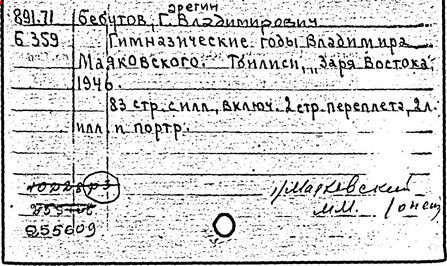 арегин
891.71 Бебутов, Г. Владимирович
Б 359 Гимназические годы Владимира
Маяковского. Тбилиси, „Заря Востока"
1946.
83 стр. с илл., включ. 2 стр. переплета, 2 л.
илл. и портр.
Маяковский
255609